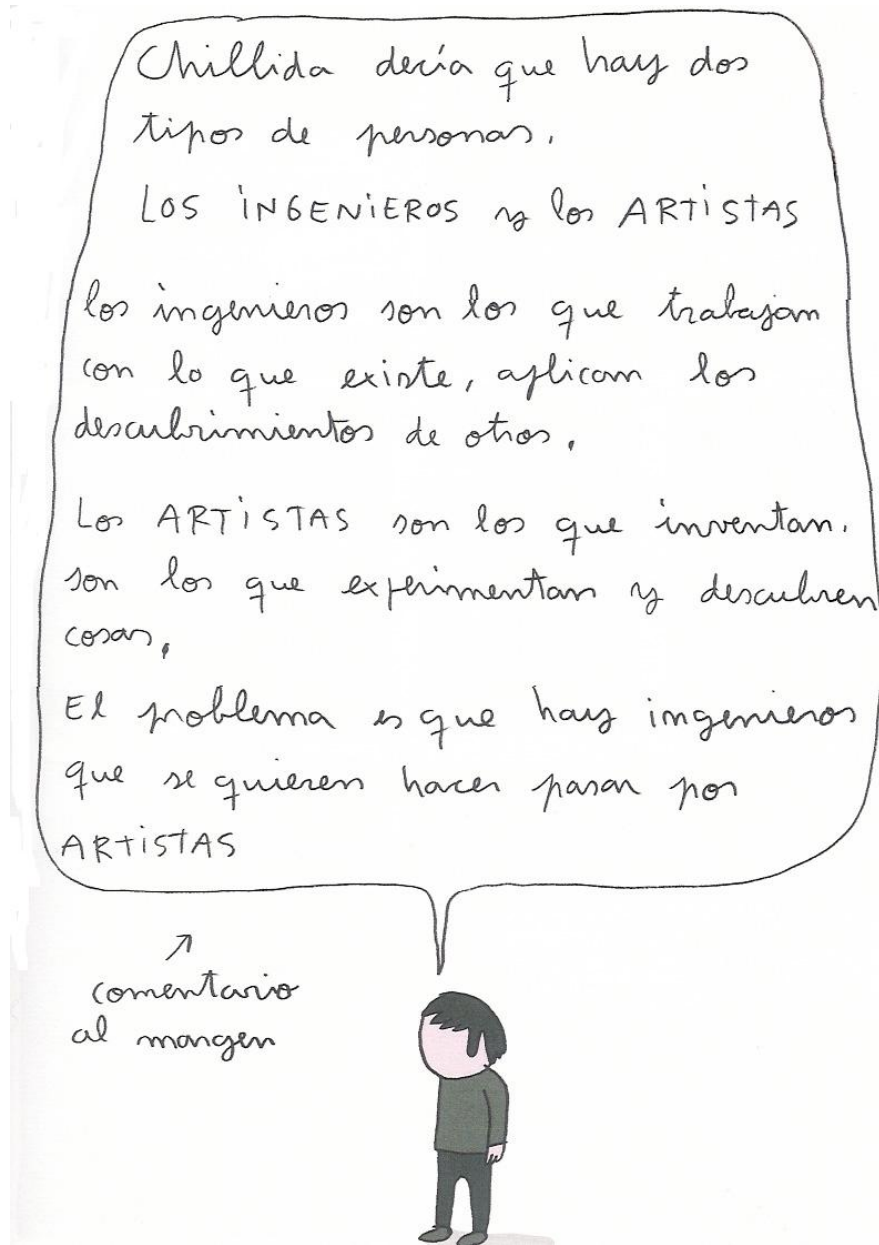 Chillida decía que hay dos
tipos de personas.
LOS iNGENiEROS y los ARTiSTAS
los ingenieros son los que trabajan
con lo que existe, aplican los
descubrimientos de otros.
Los ARTiSTAS son los que inventan.
son los que experimentan y descubren
cosas.
El problema es que hay ingenieros
que se quieren hacer pasar por
ARTiSTAS
comentario
al margen